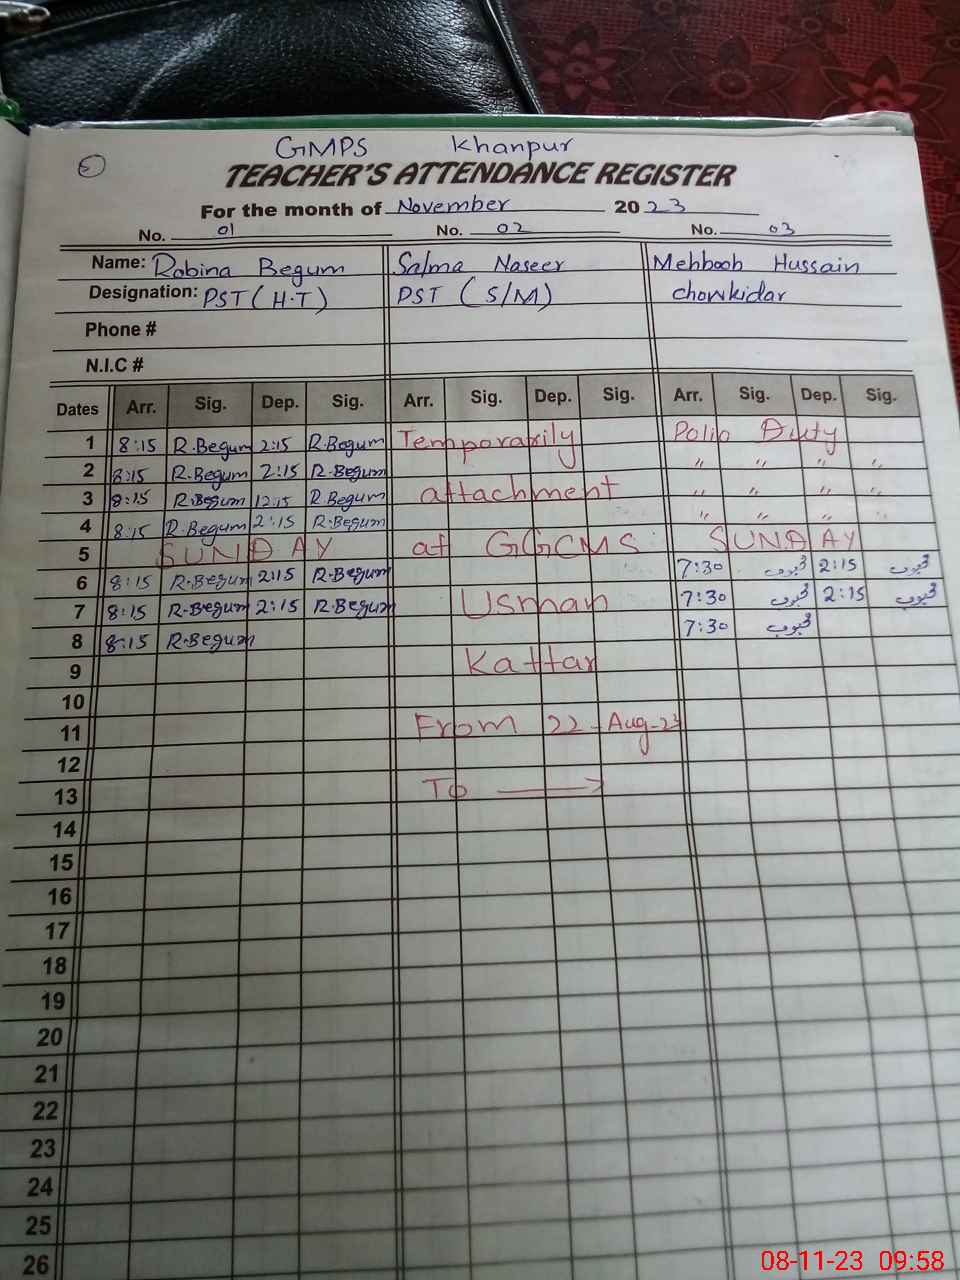 3
GMPS Khanpur
TEACHER'S ATTENDANCE REGISTER
For the month of November 2023
No. 01 No. 02 No. 03
Name: Robina Begum Salma Naseer Mehboob Hussain
Designation: PST (H.T) PST (S/M) chowkidar
Phone #
N.I.C #
Dates Arr. Sig. Dep. Sig. Arr. Sig. Dep. Sig. Arr. Sig. Dep. Sig.
1 8:15 R.Begum 2:15 R.Begum Temporarily Polio Duty
2 8:15 R.Begum 2:15 R.Begum " " " "
3 8:15 R.Begum 12:15 R.Begum attachment " " " "
4 8:15 R.Begum 2:15 R.Begum " " " "
5 SUNDAY at GGCMS SUNDAY
6 8:15 R.Begum 2:15 R.Begum 7:30 محبوب 2:15 محبوب
7 8:15 R.Begum 2:15 R.Begum Usman 7:30 محبوب 2:15 محبوب
8 8:15 R.Begum 7:30 محبوب
9 Kattar
10
11 From 22-Aug-23
12
13 To →
14
15
16
17
18
19
20
21
22
23
24
25
26
08-11-23 09:58